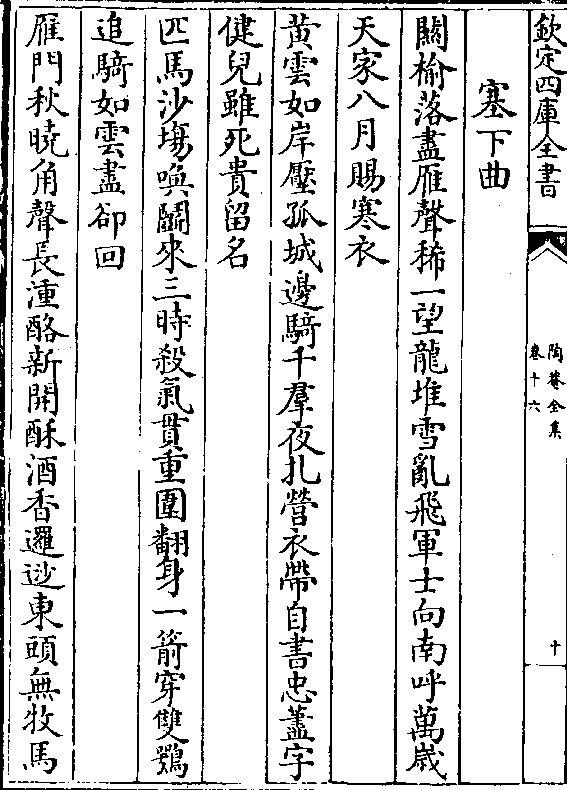 欽定四庫全書
陶菴全集
卷十六
十
塞下曲
關榆落盡雁聲稀一望龍堆雪亂飛軍士向南呼萬歲
天家八月賜寒衣
黃雲如岸壓孤城邊騎千羣夜扎營衣帶自書忠藎字
健兒雖死貴留名
匹馬沙塲喚鬬來三時殺氣貫重圍翻身一箭穿雙鶚
追騎如雲盡卻回
雁門秋曉角聲長湩酪新開酥酒香邏逤東頭無牧馬